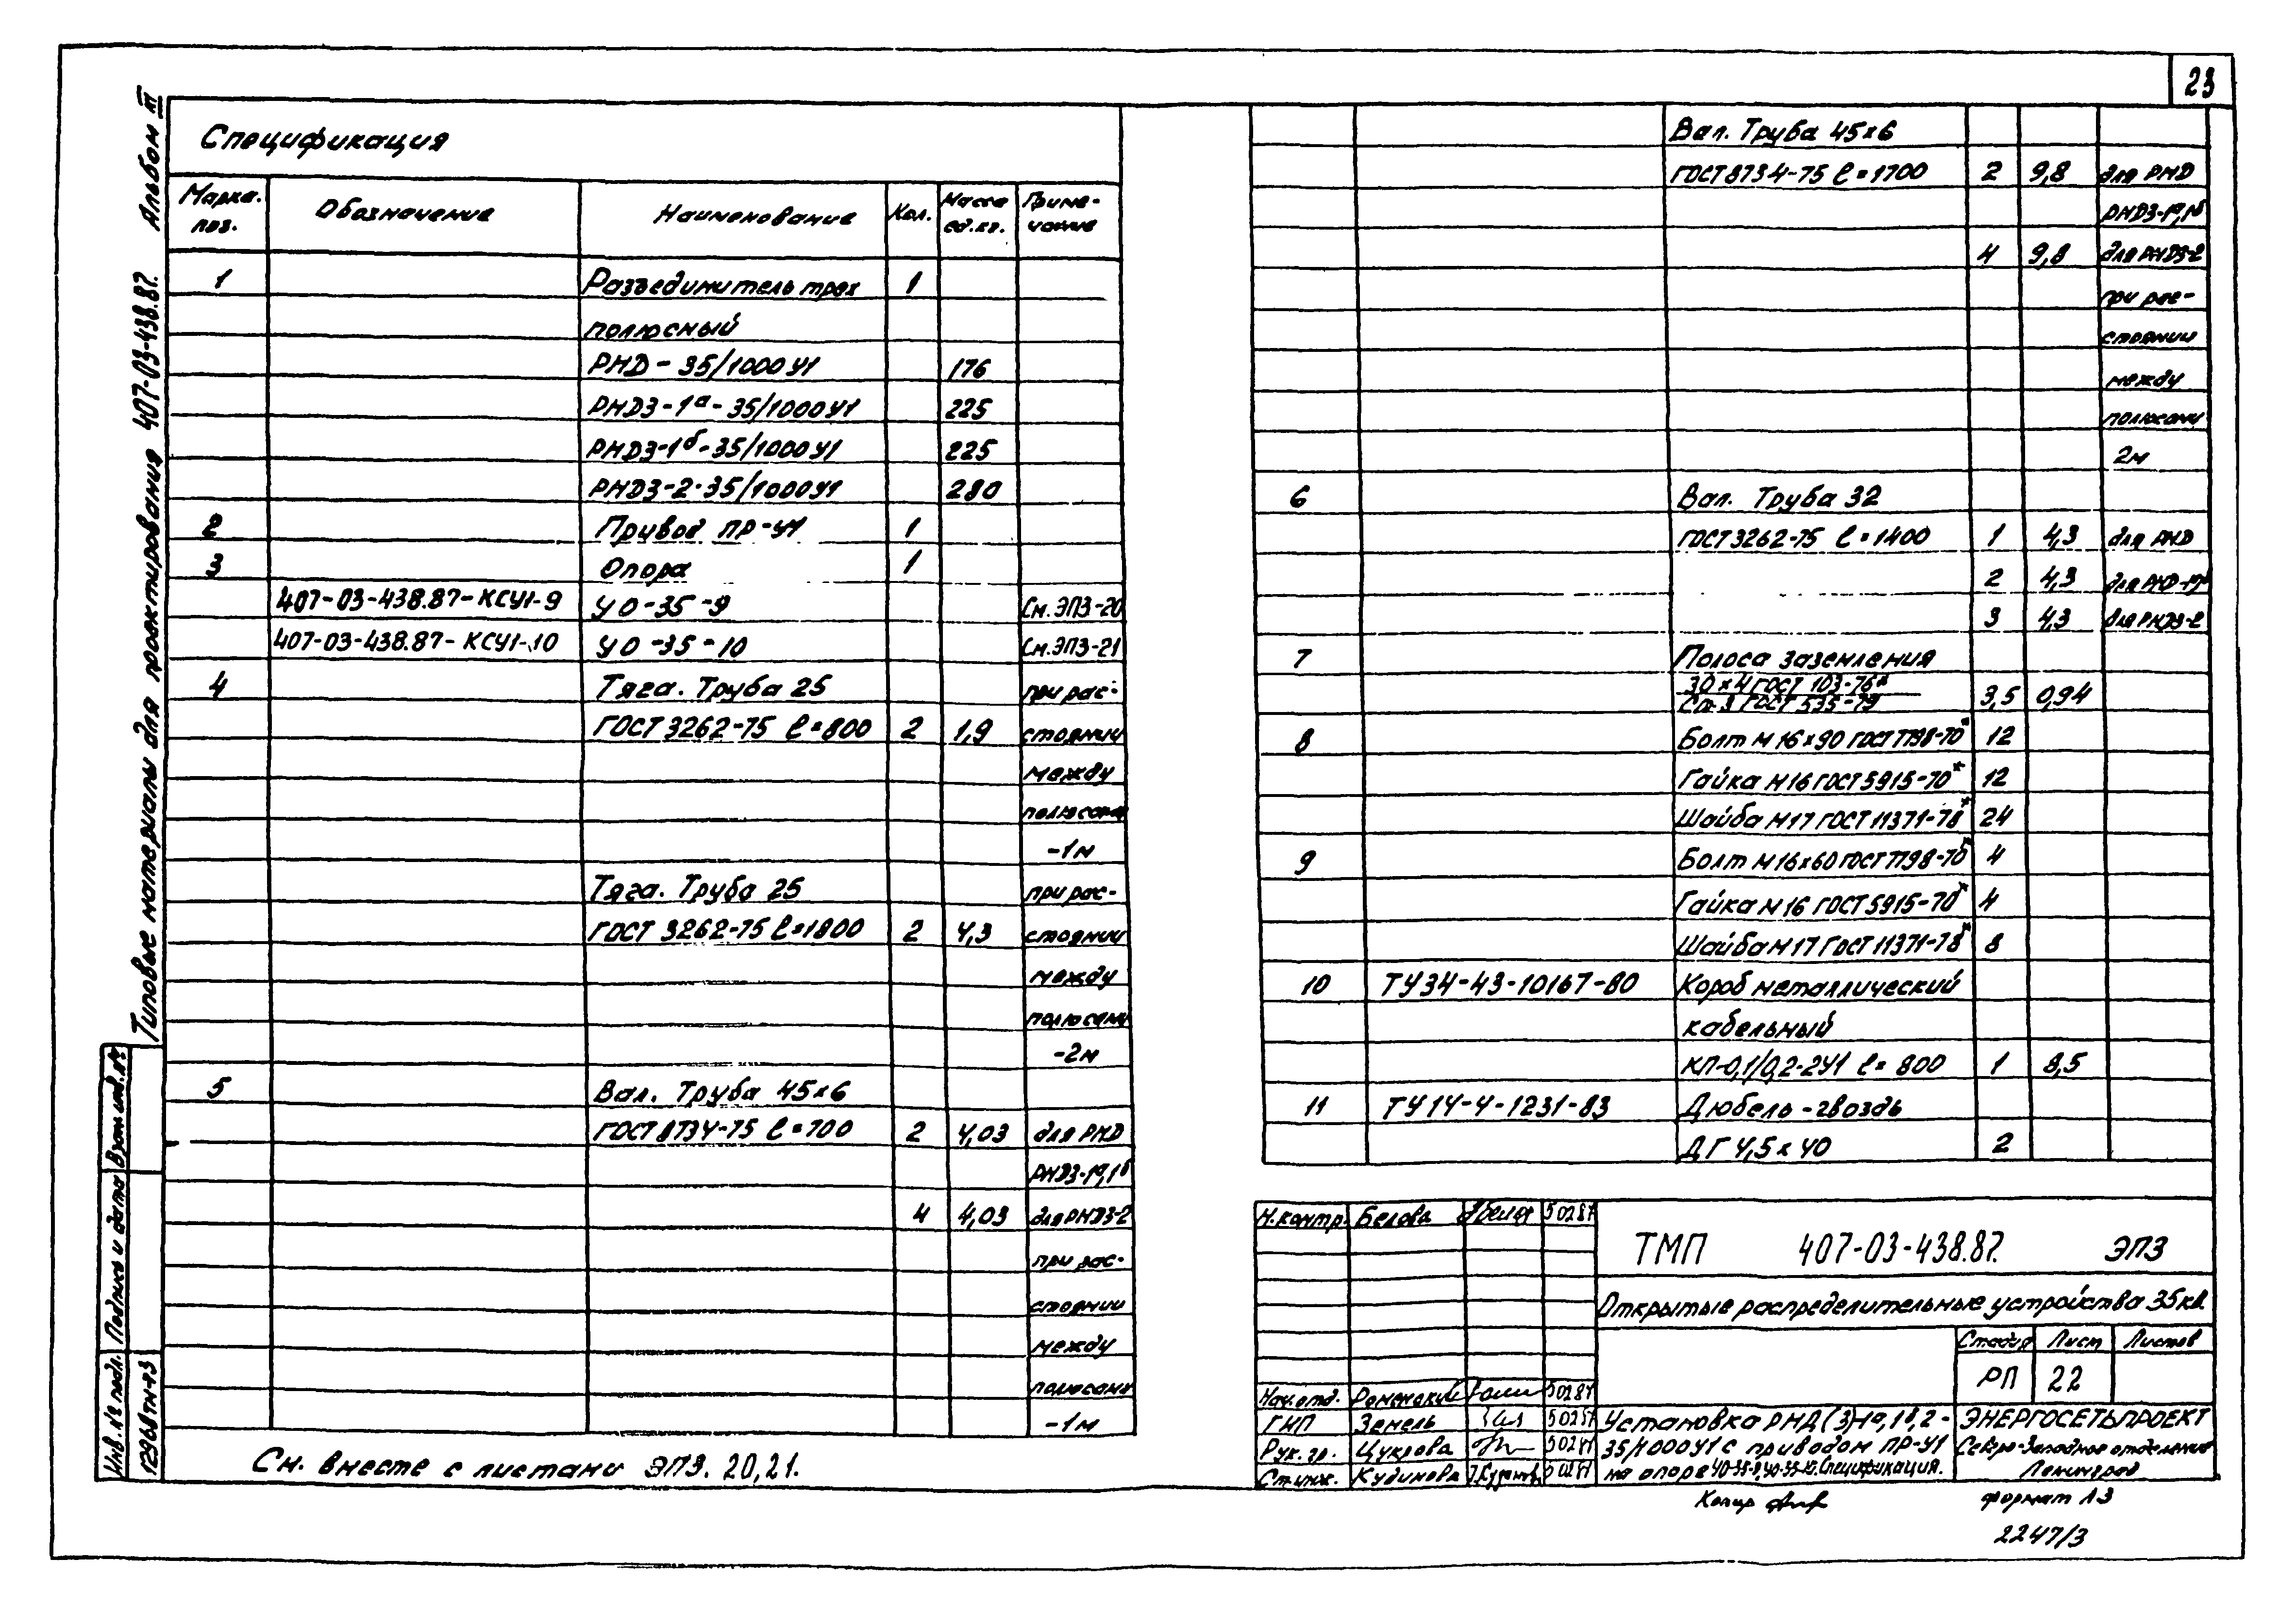 23
Типовые материалы для проектирования 407-03-438.87. Альбом III
Спецификация
Марка. поз. Обозначение Наименование Кол. Масса ед.кг. Приме-чание
1 Разъединитель трех 1
полюсный
РНД - 35/1000 У1 176
РНДЗ-1а-35/1000У1 225
РНДЗ-1б-35/1000У1 225
РНДЗ-2-35/1000У1 280
2 Привод ПР-У1 1
3 Опора 1
407-03-438.87-КСУ1-9 УО-35-9 См.ЭПЗ-20
407-03-438.87-КСУ1-10 УО-35-10 См.ЭПЗ-21
4 Тяга. Труба 25 при рас-
ГОСТ 3262-75 ℓ=800 2 1,9 стоянии
между
полюсами
-1м
Тяга. Труба 25 при рас-
ГОСТ 3262-75 ℓ=1800 2 4,3 стоянии
между
полюсами
-2м
5 Вал. Труба 45х6
ГОСТ 8734-75 ℓ=700 2 4,03 для РНД
РНДЗ-1а,1б
4 4,03 для РНДЗ-2
при рас-
стоянии
между
полюсами
-1м
См. вместе с листами ЭПЗ. 20,21.
Вал. Труба 45х6
ГОСТ 8734-75 ℓ=1700 2 9,8 для РНД
РНДЗ-1а,1б
4 9,8 для РНДЗ-2
при рас-
стоянии
между
полюсами
2м
6 Вал. Труба 32
ГОСТ 3262-75 ℓ=1400 1 4,3 для РНД
2 4,3 для РНД-1а
3 4,3 для РНДЗ-2
7 Полоса заземления
30х4 ГОСТ 103-76*
Ст.3 ГОСТ 535-79 3,5 0,94
8 Болт М16х90 ГОСТ 7798-70* 12
Гайка М16 ГОСТ 5915-70* 12
Шайба М17 ГОСТ 11371-78* 24
9 Болт М16х60 ГОСТ 7798-70* 4
Гайка М16 ГОСТ 5915-70* 4
Шайба М17 ГОСТ 11371-78* 8
10 ТУ34-43-10167-80 Короб металлический
кабельный
КП-0,1/0,2-2У1 ℓ=800 1 8,5
11 ТУ14-4-1231-83 Дюбель-гвоздь
ДГ 4,5х40 2
Н.контр. Белова 50287
ТМП 407-03-438.87. ЭПЗ
Открытые распределительные устройства 35кв.
Стадия Лист Листов
РП 22
Нач.отд. Роменский 50287
ГИП Земель 50287
Рук.гр. Цукрова 50287
Ст.инж. Кудинова 50287
Установка РНД(З)-1а,1б,2-
35/1000У1 с приводом ПР-У1
на опоре УО-35-9,УО-35-10. Спецификация.
ЭНЕРГОСЕТЬПРОЕКТ
Северо-Западное отделение
Ленинград
Копир
формат А3
2247/3
Инв.№ подл. Подпись и дата Взам.инв.№
12968тм-т3